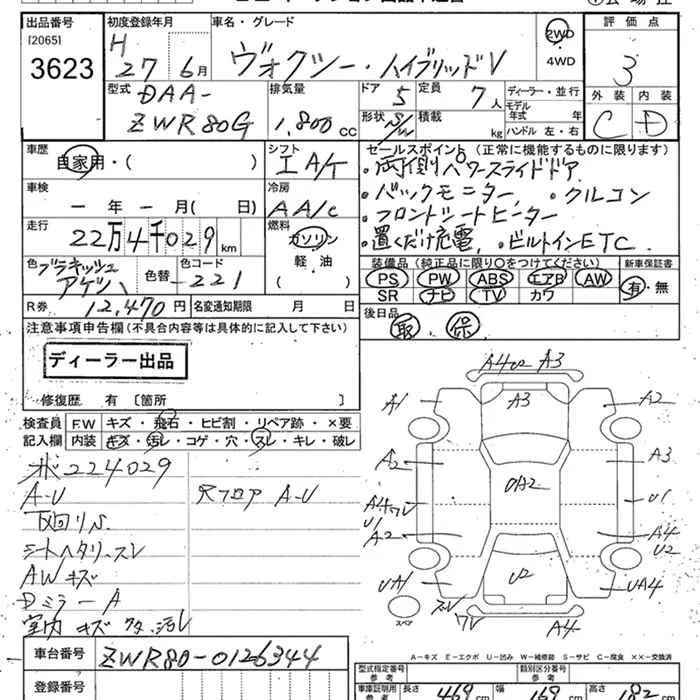 出品番号 初度登録年月 車名・グレード 評価点
[2065] H 2WD
3623 27 6月 ヴォクシー・ハイブリッドV 4WD 3
型式 排気量 ドア 定員 ディーラー・並行 外装 内装
DAA- 5 7人 モデル年式 年式
ZWR80G 1,800cc 形状 S/W 積載 kg ハンドル 左・右 C D
車歴 シフト セールスポイント (正常に機能するものに限ります)
自家用・( ) I A/T ・両側パワースライドドア
車検 冷房 ・バックモニター ・クルコン
ー年ー月( 日) AA/C ・フロントシートヒーター
走行 燃料 ・置くだけ充電 ・ビルトインETC
22万4千029km ガソリン
色 色替 色コード 軽油 装備品 (純正品に限り○をつけてください) 新車保証書
ブラキッシュアゲハ -221 ( ) PS PW ABS エアB AW 有・無
SR ナビ TV カワ
R券 12,470円 名変通知期限 月 日 後日品
注意事項申告欄(不具合内容等は具体的に記入して下さい) 取 保
ディーラー出品
修復歴 有 〔箇所 〕
検査員記入欄 F.W キズ・飛石・ヒビ割・リペア跡・×要
内装 キズ・汚レ・コゲ・穴・スレ・キレ・破レ
メ224029
A-U Rフロア A-U
下回りS
シートヘタリ、スレ
AWキズ
DミラーA
室内 キズ 汚レ
A4U2 A3
A1 A3 A2
A2 A3
UA2 U1
A4ワレ U1
A2 A4 U2
UA1 U2 UA4
スレ ワレ A4
スペア
A－キズ E－エクボ U－凹み W－補修跡 S－サビ C－腐食 ××－交換済
車台番号 ZWR80-0126344
登録番号
型式指定番号 参考 類別区分番号 参考
車庫証明用 参考 長さ 469cm 幅 169cm 高さ 182cm